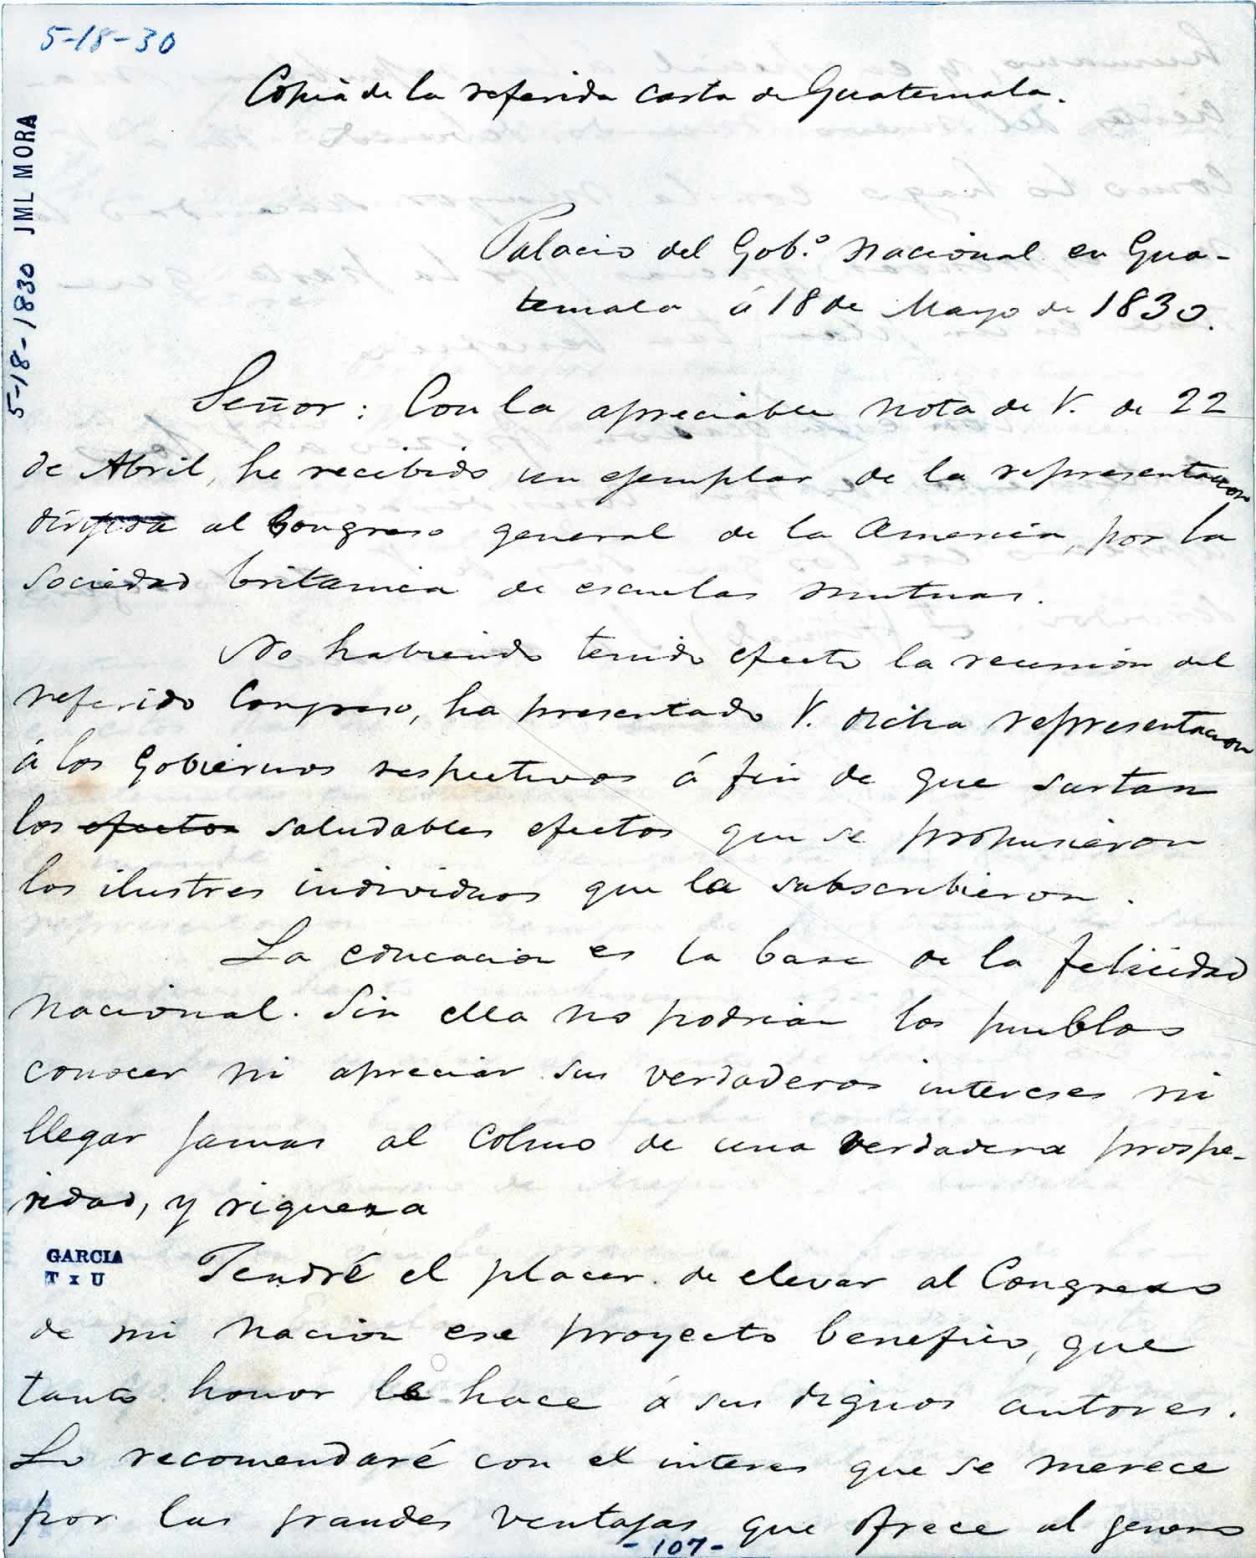 5-18-30
Copia de la referida carta de Guatemala.
5-18-1830 JML MORA
Palacio del Gob.º nacional en Gua-
temala á 18 de Mayo de 1830.
Señor: Con la apreciable nota de V. de 22
de Abril, he recibido un ejemplar de la representacion
dirigida al Congreso general de la America, por la
sociedad britanica de escuelas mutuas.
No habiendo tenido efecto la reunion del
referido Congreso, ha presentado V. dicha representacion
á los Gobiernos respectivos á fin de que surtan
los efectos saludables efectos que se propusieron
los ilustres individuos que la subscribieron.
La educacion es la base de la felicidad
nacional. Sin ella no podrian los pueblos
conocer ni apreciar sus verdaderos intereses ni
llegar jamas al colmo de una verdadera prospe-
ridad, y riqueza
GARCIA
T x U
Tendré el placer de elevar al Congreso
de mi nacion ese proyecto benefico, que
tanto honor le hace á sus dignos autores.
Lo recomendaré con el interes que se merece
por las grandes ventajas que ofrece al genero
-107-